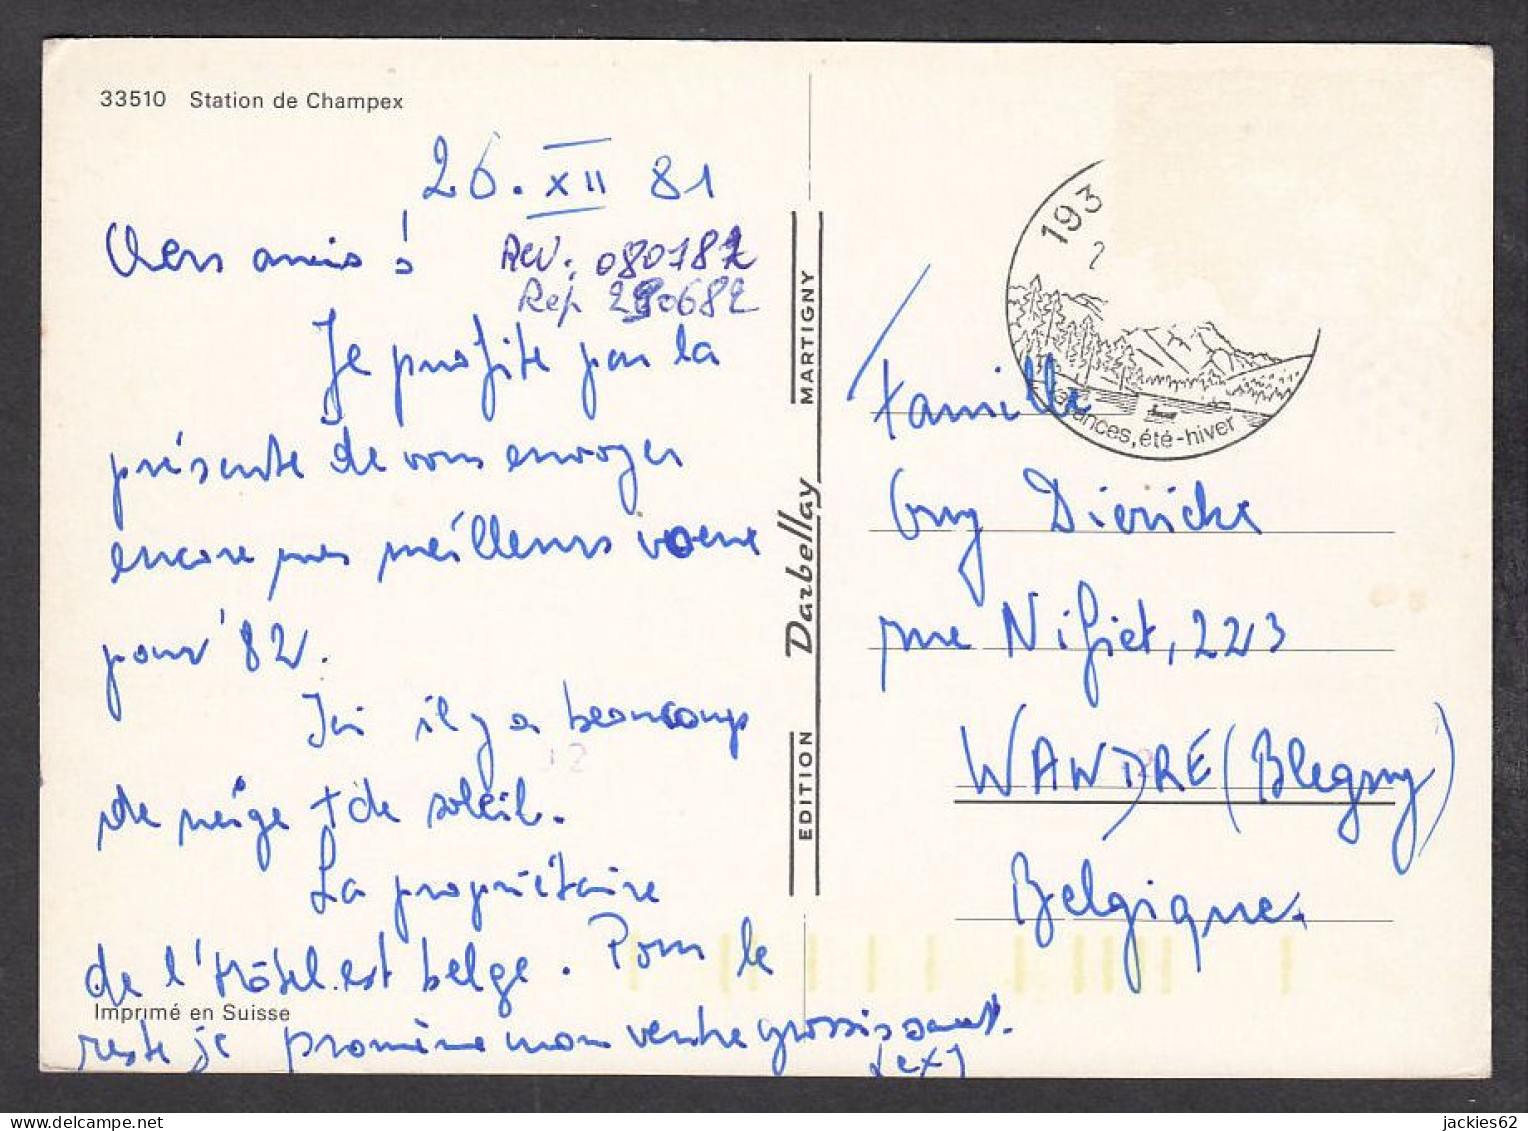 33510 Station de Champex
26. XII 81
Chers amis,
Rev. 080182
Rep 290682
Je profite par la
présente de vous envoyer
encore mes meilleurs voeux
pour '82.
Ici il y a beaucoup
de neige + de soleil.
La propriétaire
de l'Hôtel est belge. Pour le
reste je promène mon ventre grossissant.
Imprimé en Suisse
EDITION Darbellay MARTIGNY
193
vacances, été-hiver
Famille
Guy Diericks
rue Nifiet, 223
WANDRE (Blegny)
Belgique.
jackies62